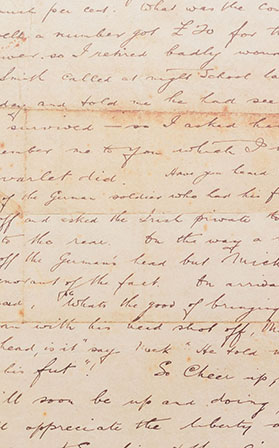 much per cent. What was the Cou
a number got £20 for th
ever. so I retired badly woun
Smith called at night School la
day and told me he had see
survived — so I asked h
ember me to you which I
varlet did. Have you heard
of the German soldier who had his f
off and asked the Irish private to
to the rear. On the way a
off the German's head but Mick
ignorant of the fact. On arriva
said, "Whats the good of bringing
an with his head shot off,
head, is it" say Mick "He told m
his fut". So Cheer up,
ill soon be up and doing
d appreciate the liberty